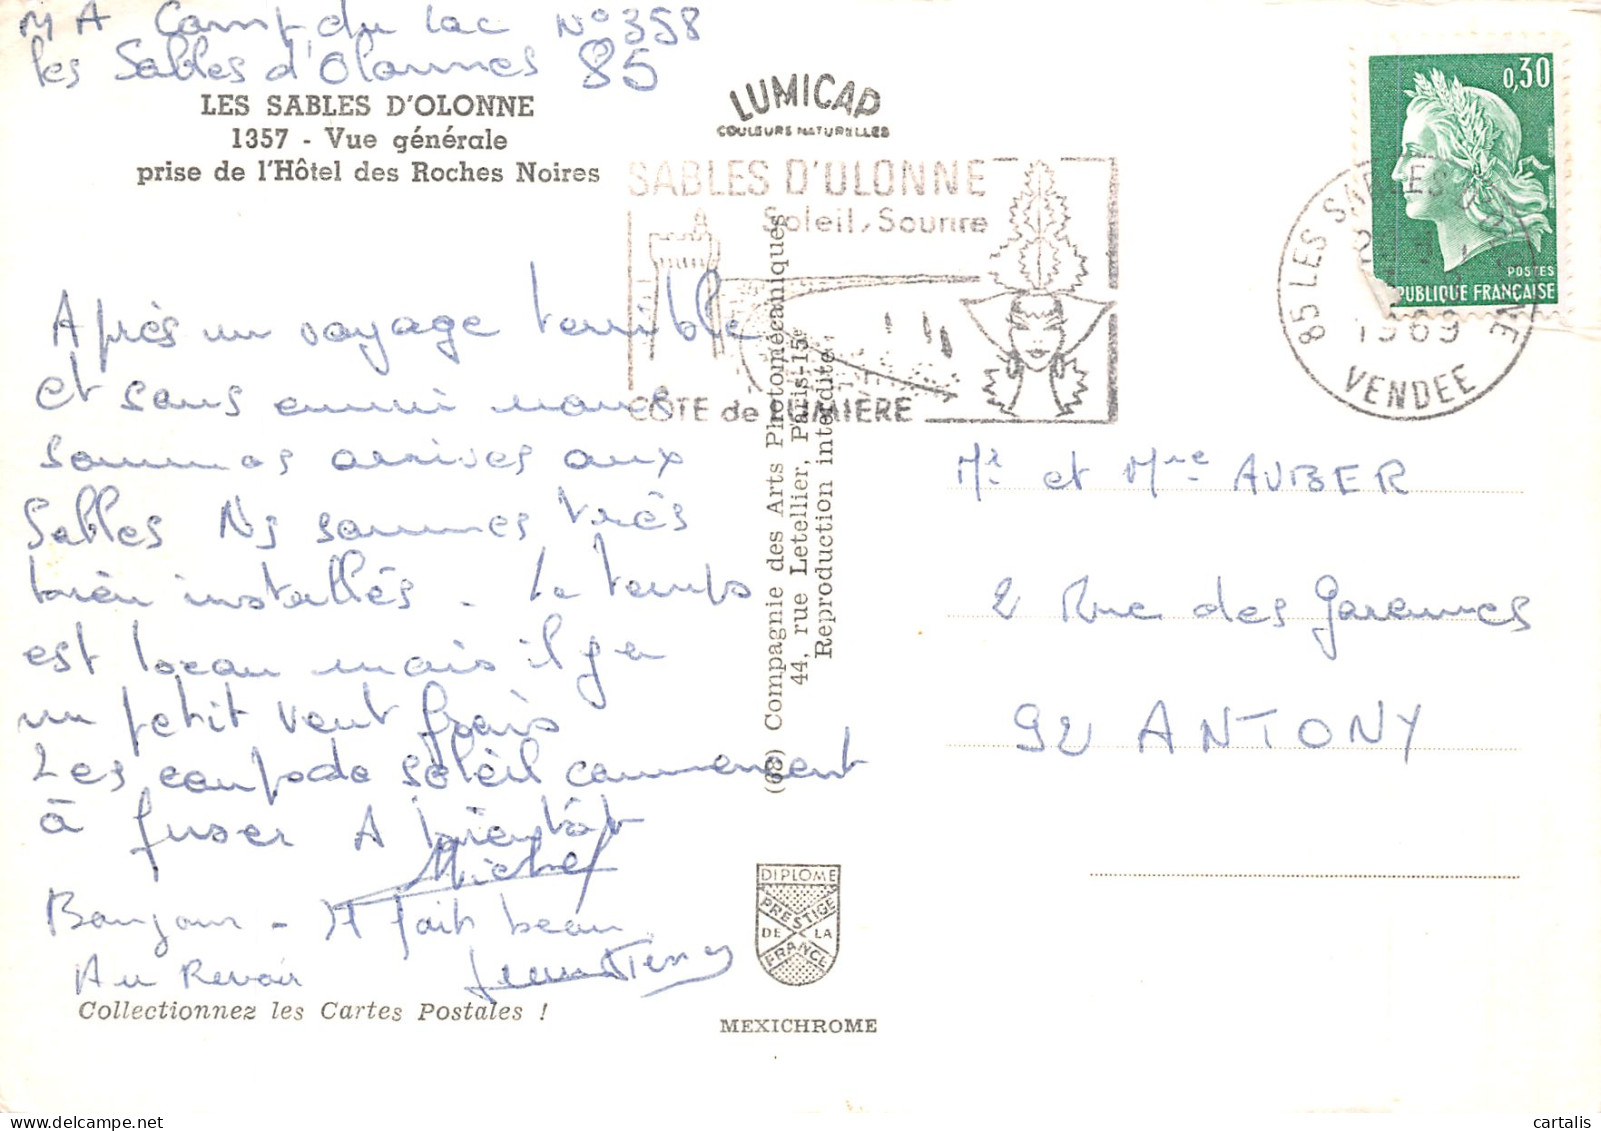 M A Camp du Lac N° 358
les Sables d'Olonnes 85
LES SABLES D'OLONNE
1357 - Vue générale
prise de l'Hôtel des Roches Noires
LUMICAP
COULEURS NATURELLES
SABLES D'OLONNE
Soleil, Sourire
CÔTE de LUMIÈRE
0,30
POSTES
PUBLIQUE FRANÇAISE
85 LES SABLES D'OLONNE
1969
VENDEE
Après un voyage terrible
et sans ennui nous
sommes arrives aux
Sables Ns sommes très
bien installés - Le temps
est beau mais il y a
un petit vent frais
Les coups de soleil commencent
à fuser A bientôt
Michel
Bonjour - Il fait beau
Au Revoir
Collectionnez les Cartes Postales !
(68) Compagnie des Arts Photomécaniques
44, rue Letellier, Paris-15e
Reproduction interdite
Mr et Mme AUBER
2 Rue des Garennes
92 ANTONY
DIPLOME
PRESTIGE
DE LA
FRANCE
MEXICHROME
cartalis